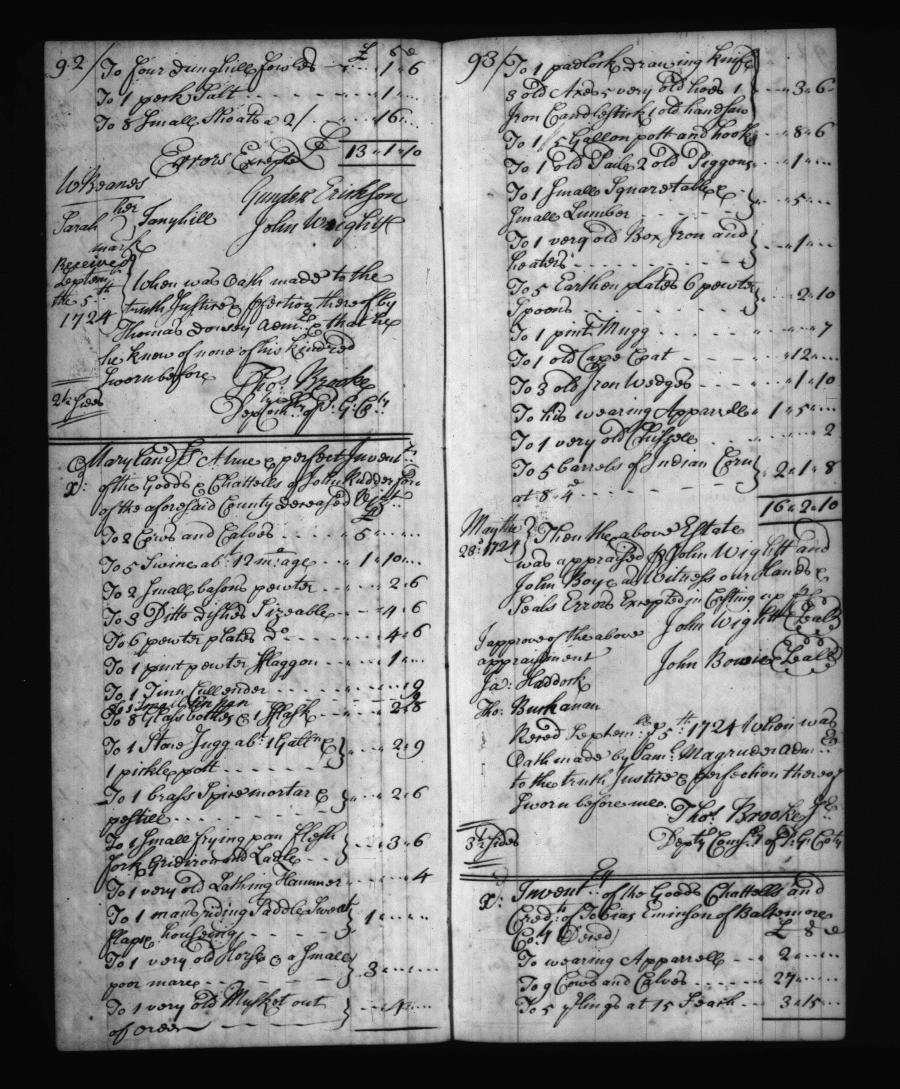 92/ £ s d
To four dunghill fowles - - - 1 " 6
To 1 peck Salt - - - - - 1 " ...
To 8 Small Shoats a 2/ . - - - 16 " ...
Errors Excepted £ 13 " 1 " 10
W Beanes Gunder Erickson
Sarah her mark Tanyhill John Wightt
Received Septem.br the 5.th 1724
When was Oath made to the
truth Justice & pfection thereof by
Thomas Dowsey adm.r & that he
he knew of none of his kindred
Sworn before Tho.s Brooke
2½ Sides Dep Com.ry of P: G: C.ty
Maryland ss A true & perfect Invent.ry
of the Goods & Chattells of John Kidder
of the aforesaid County deceased
£
To 2 Cows and Calves - - - 5 " ...
To 5 Swine ab.t 12 m.o age - - 1 " 10 ...
To 2 Small basons pewter - - - " 2 " 6
To 3 Ditto dishes Sizeable - - - " 4 " 6
To 6 pewter plates d.o - - - " 4 " 6
To 1 pint pewter flaggon - - - " 1 " ...
To 1 Tinn Cullender - - - - - " 9
To 1 Small Tin pan
To 8 Glass bottles & 1 flask - - - " 2 " 8
To 1 Stone Jugg ab.t 1 Gall.n &
1 pickle pott - - - " 2 " 9
To 1 brass Spice mortar &
pestill - - - - " 2 " 6
To 1 Small frying pan flesh
fork Gridiron and Ladle - - " 3 " 6
To 1 very old Lathing Hammer - - - " 4
To 1 mans riding Saddle Sweat
flaps housing - - - 1 " ...
To 1 very old Horse & a Small
poor mare - - - - 3 " ...
To 1 very old Musket out
of order - - - - " 4 " ...
93/ To 1 padlock drawing knife
3 old Axes 5 very old hoes 1
Iron Candlestick 1 old handsaw - - " 3 " 6
To 1 5 Gallon pott and hook - - " 8 " 6
To 1 old Paile 2 old Piggons - - " 1 " ...
To 1 Small Square table &
Small Lumber - - - - " 5 " ...
To 1 very old Box Iron and
heaters - - - - " 1 " ...
To 5 Earthen plates 6 pewter
Spoons - - - - " 2 " 10
To 1 pint Mugg - - - - " " 7
To 1 old Cape Coat - - - - " 12 " ...
To 3 old Iron Wedges - - - - " 1 " 10
To his wearing Apparrell - 1 " 5 " ...
To 1 very old Chissell - - - " 2
To 5 barrels of Indian Corn
at 8 " 4 - - - - 2 " 1 " 8
16 " 2 " 10
May the 28.th 1724
Then the above Estate
was appraised p John Wightt and
John Boye as Witness our Hands &
Seals Errors Excepted in Casting up
John Wightt (Seal)
I approve of the above
appraisment John Bowie (Seal)
Ja: Haddock
Tho: Buchanan
Rec'd Septem.br y.e 5.th 1724 When was
Oath made by Sam.l Magruder adm.r
to the truth Justice & perfection thereof
Sworn before me. Tho.s Brooke
3½ Sides Dep.ty Com.ry of P: G: Co.ty
Invent.ry of the Goods Chattells and
Cred.ts of Tobias Eminson of Baltemore
Co.ty Dec'ed) £ s d
To wearing Apparrell - - - 2 " ...
To 9 Cows and Calves - - - 27 " ...
To 5 yrlings at 15 S each - - 3 " 15 ...